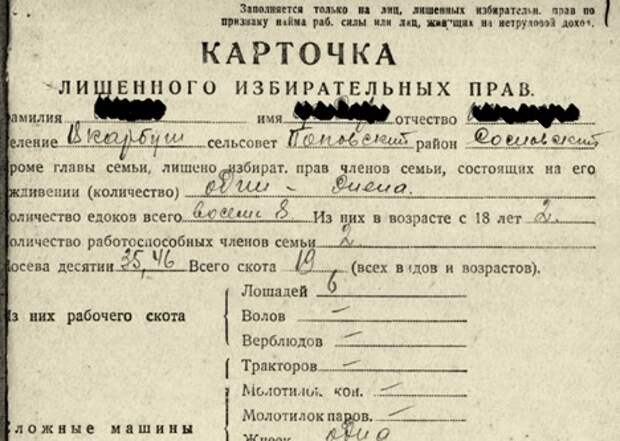 Заполняется только на лиц, лишенных избирательн. прав по
признаку найма раб. силы или лиц, живущих на нетрудовой доход.
КАРТОЧКА
ЛИШЕННОГО ИЗБИРАТЕЛЬНЫХ ПРАВ.
амилия имя отчество
еление сельсовет Поповский район Сосновский
роме главы семьи, лишено избират. прав членов семьи, состоящих на его
ждивении (количество) один - жена.
оличество едоков всего восемь 8 Из них в возрасте с 18 лет 2.
оличество работоспособных членов семьи 2
осева десятин 35,46 Всего скота 19 (всех видов и возрастов).
Лошадей 6
Из них рабочего скота Волов —
Верблюдов —
Тракторов —
Молотилок кон. —
Молотилок паров. —
ложные машины
Жнеек одна